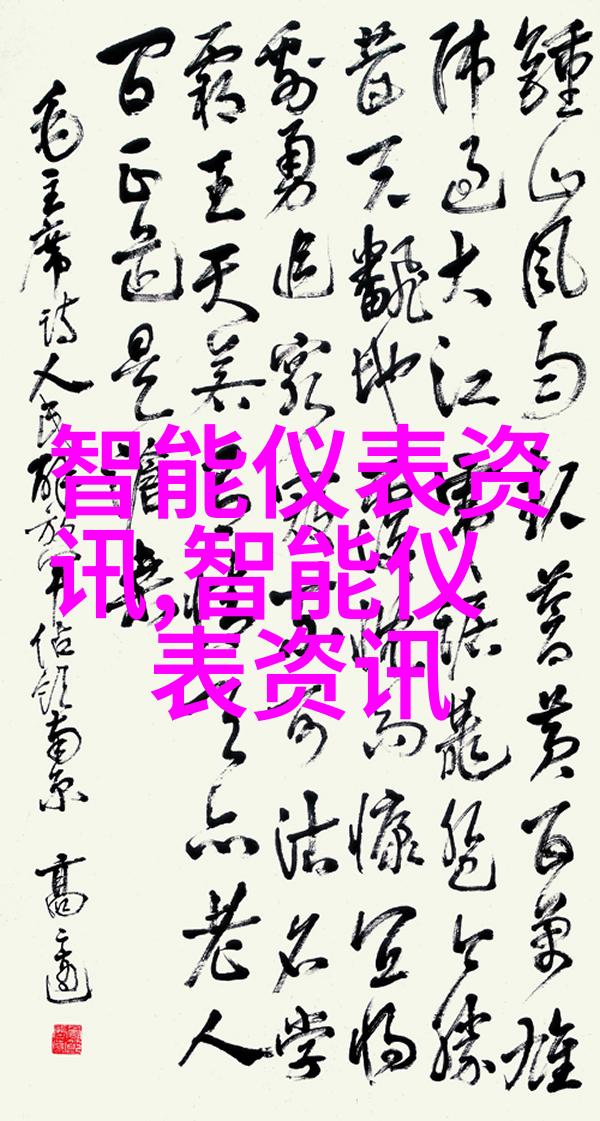 鍾山風雨起蒼黃百萬雄
师過大江虎踞龍盤今勝
昔天翻地覆慨而慷宜將
剩勇追窮寇不可沽名學
霸王天若有情天亦老人
间正道是滄桑
毛主席诗人民解放军佔领南京 高
智能仪表资
讯,智能仪
表资讯